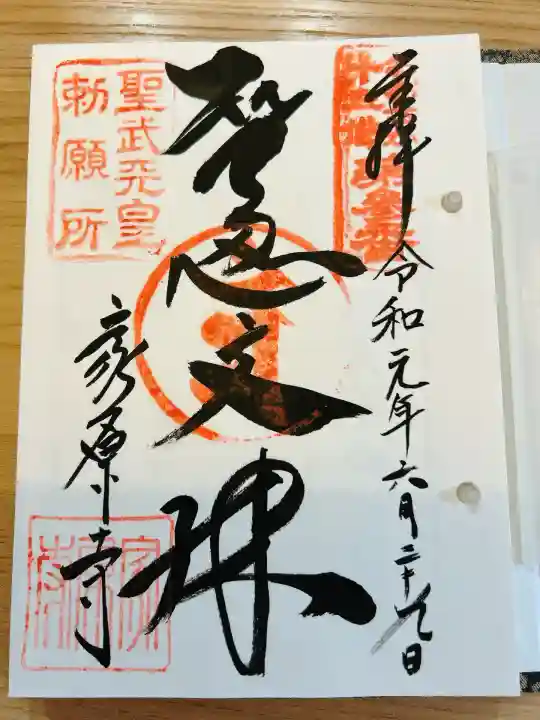 奉拝 令和元年六月二十九日
智恵文殊
聖武天皇
勅願所
家原寺
家原寺